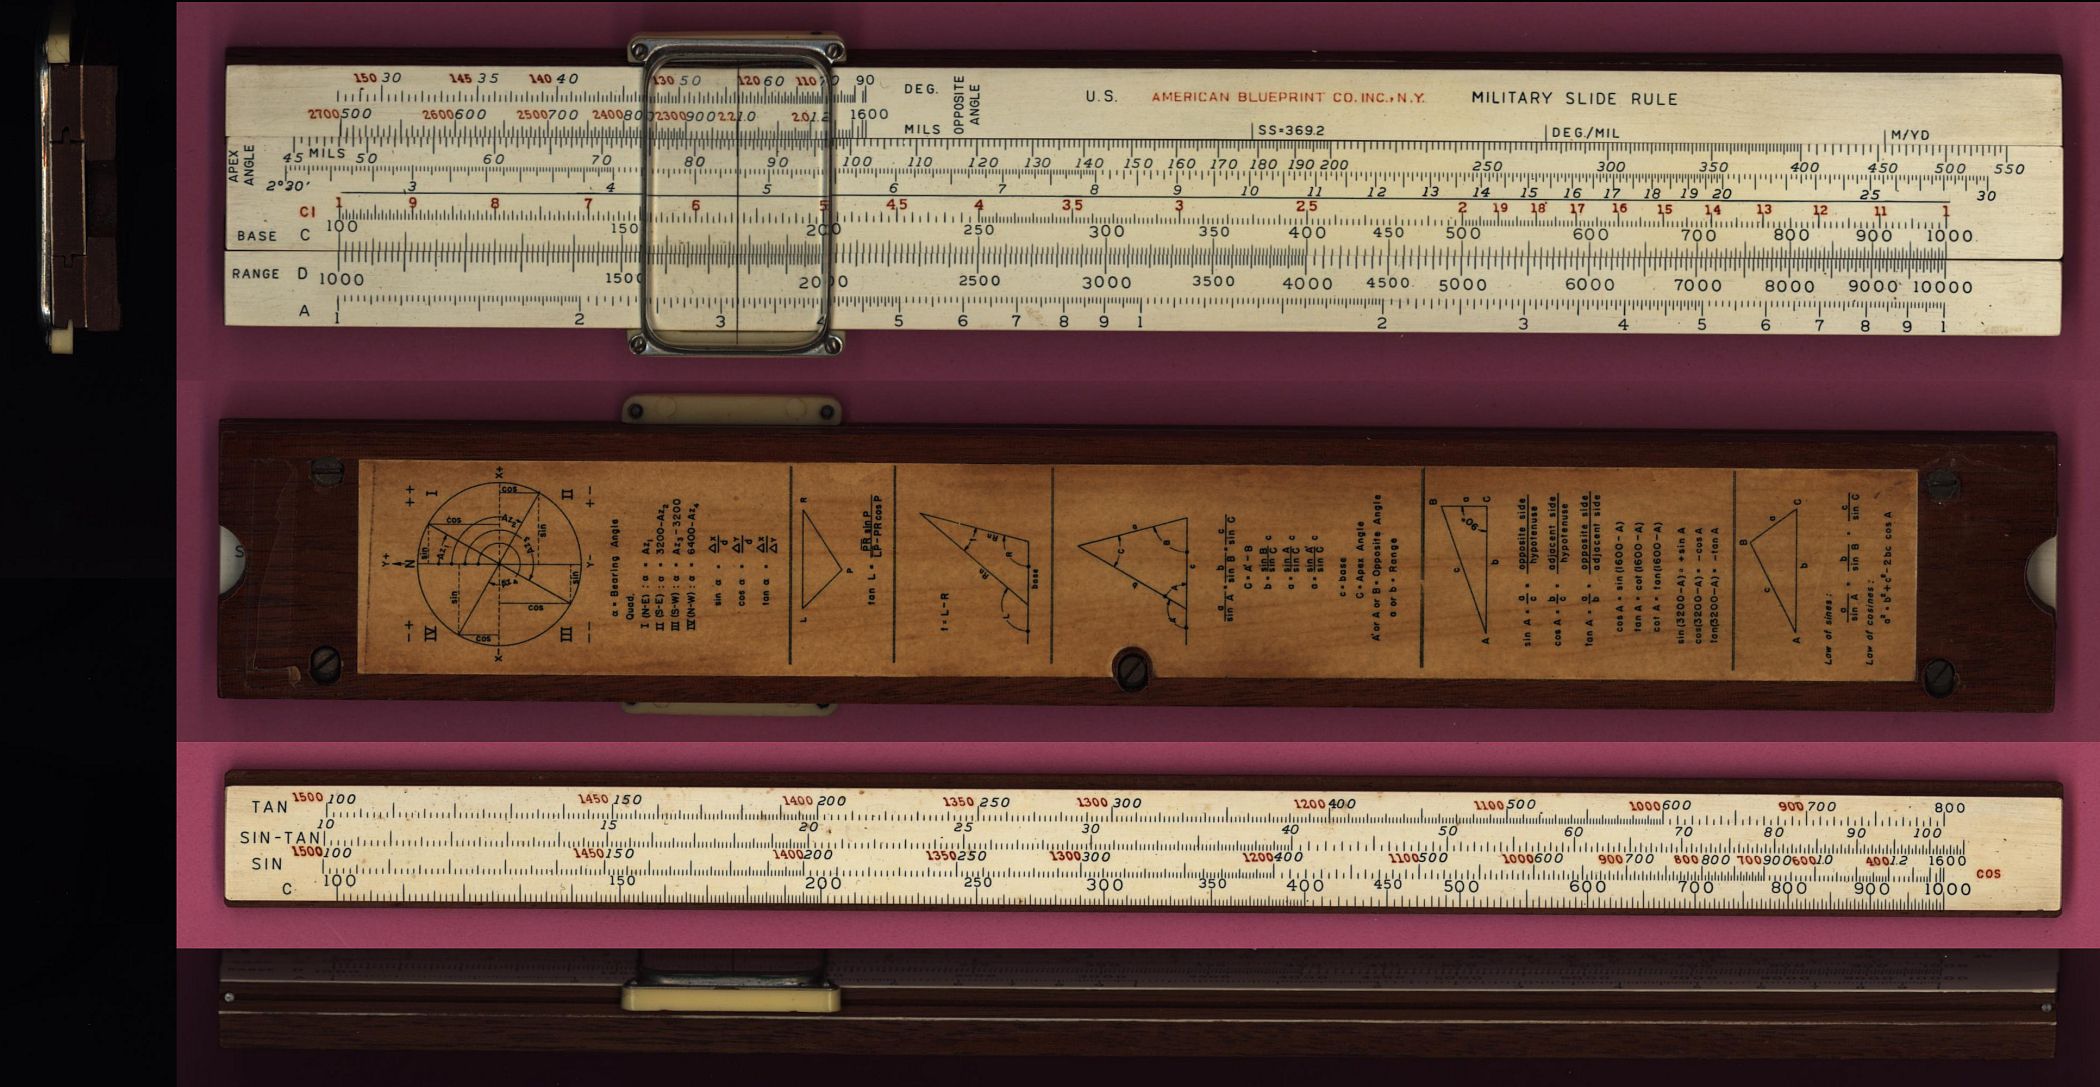 150 30 145 35 140 40 130 50 120 60 110 70 90 DEG. OPPOSITE ANGLE U.S. AMERICAN BLUEPRINT CO. INC., N.Y. MILITARY SLIDE RULE
2700 500 2600 600 2500 700 2400 800 2300 900 22 1.0 20 1.2 1600 MILS SS=369.2 DEG./MIL M/YD
APEX ANGLE 45 MILS 50 60 70 80 90 100 110 120 130 140 150 160 170 180 190 200 250 300 350 400 450 500 550
2°30' 3 4 5 6 7 8 9 10 11 12 13 14 15 16 17 18 19 20 25 30
CI 1 9 8 7 6 5 4.5 4 3.5 3 2.5 2 19 18 17 16 15 14 13 12 11 1
BASE C 100 150 200 250 300 350 400 450 500 600 700 800 900 1000
RANGE D 1000 1500 2000 2500 3000 3500 4000 4500 5000 6000 7000 8000 9000 10000
A 1 2 3 4 5 6 7 8 9 1 2 3 4 5 6 7 8 9 1
S
α = Bearing Angle
Quad.
I (N-E) : α = Az₁
II (S-E) : α = 3200-Az₂
III (S-W) : α = Az₃-3200
IV (N-W) : α = 6400-Az₄
sin α = Δx/d
cos α = Δy/d
tan α = Δx/Δy
L R P
tan L = PR sin P / LP-PR cos P
t = L-R
base
a/sin A = b/sin B = c/sin C
C = A'-B
b = sin B/sin C c
a = sin A/sin C c
a = sin A'/sin C c
c = base
C = Apex Angle
A' or A or B = Opposite Angle
a or b = Range
A B C a b c 90°
sin A = a/c = opposite side/hypotenuse
cos A = b/c = adjacent side/hypotenuse
tan A = a/b = opposite side/adjacent side
cos A = sin (1600-A)
tan A = cot (1600-A)
cot A = tan (1600-A)
sin (3200-A) = +sin A
cos (3200-A) = -cos A
tan (3200-A) = -tan A
A B C a b c
Law of sines:
a/sin A = b/sin B = c/sin C
Law of cosines:
a² = b² + c² - 2bc cos A
TAN 1500 100 1450 150 1400 200 1350 250 1300 300 1200 400 1100 500 1000 600 900 700 800
SIN-TAN 10 15 20 25 30 40 50 60 70 80 90 100
SIN 1500 100 1450 150 1400 200 1350 250 1300 300 1200 400 1100 500 1000 600 900 700 800 800 700 900 600 1.0 400 1.2 1600 COS
C 100 150 200 250 300 350 400 450 500 600 700 800 900 1000